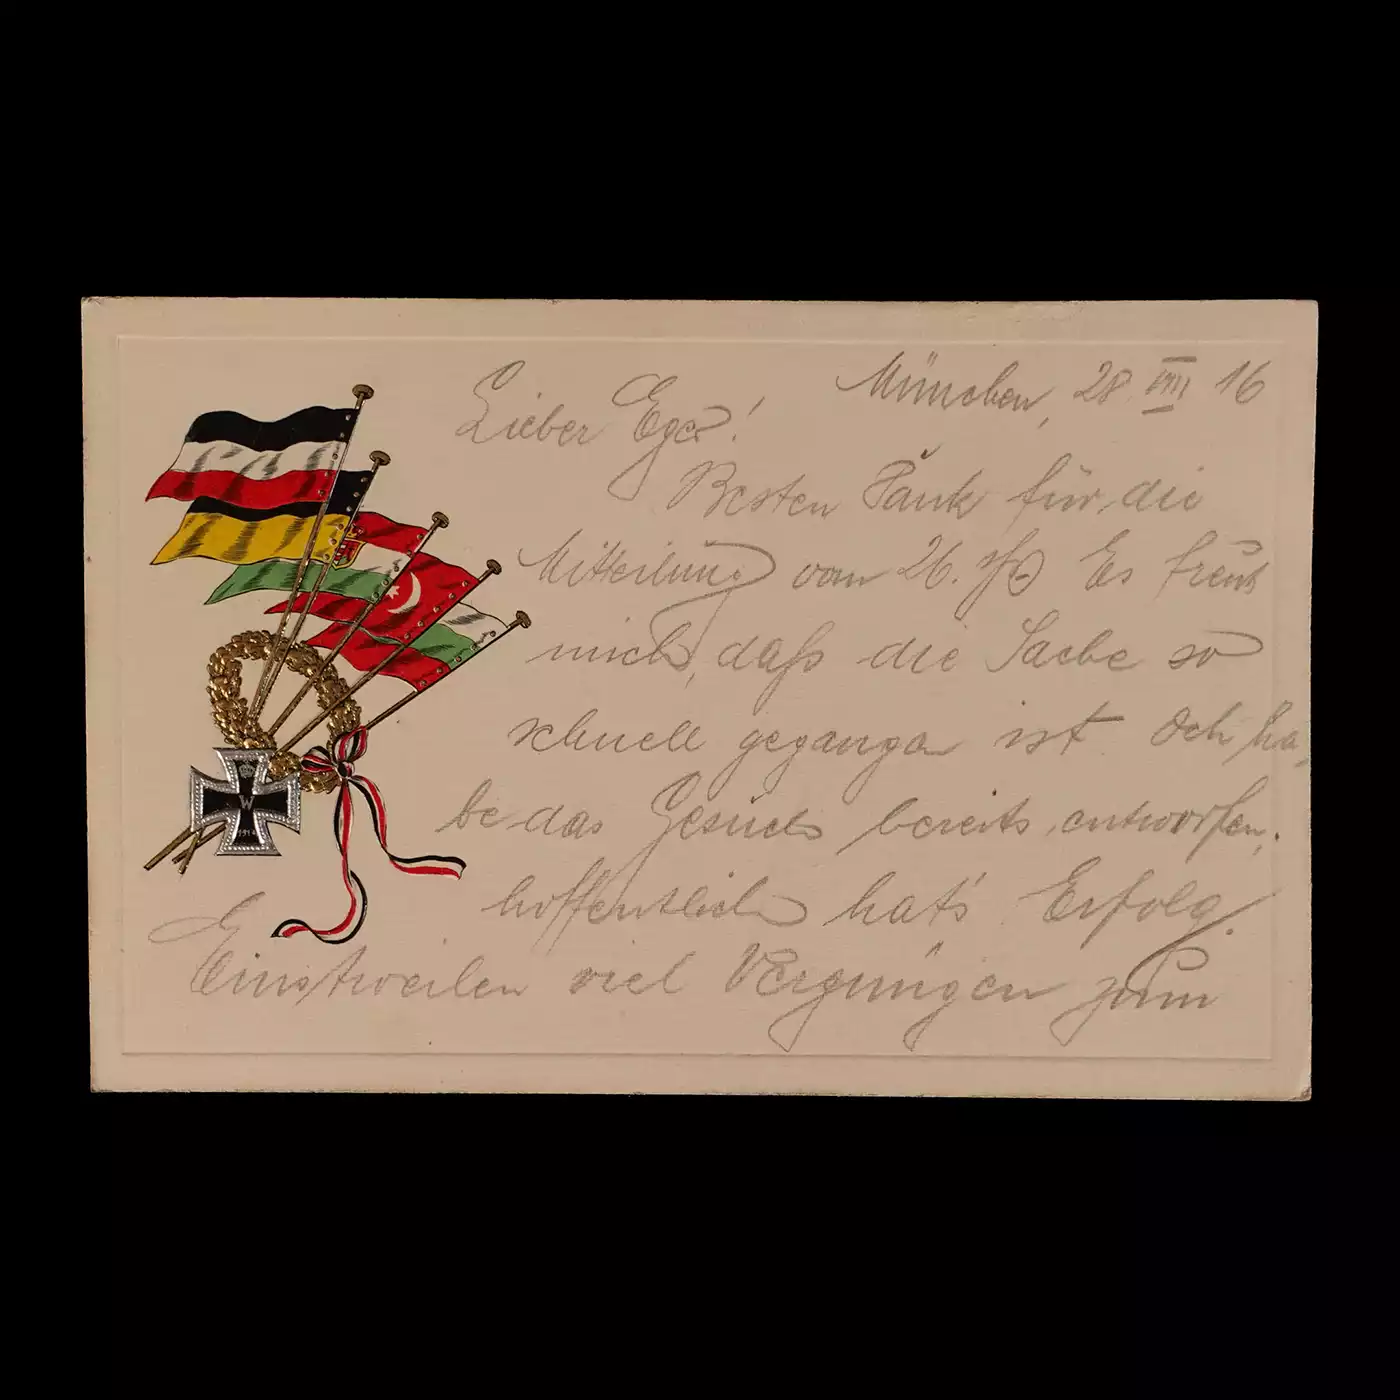 München, 28. VIII 16
Lieber Eger!
Besten Dank für die
Mitteilung vom 26. Es freut
mich, daß die Sache so
schnell gegangen ist. Ich ha-
be das Gesuch bereits entworfen,
hoffentlich hat's Erfolg.
Einstweilen viel Vergnügen zum
W
1914